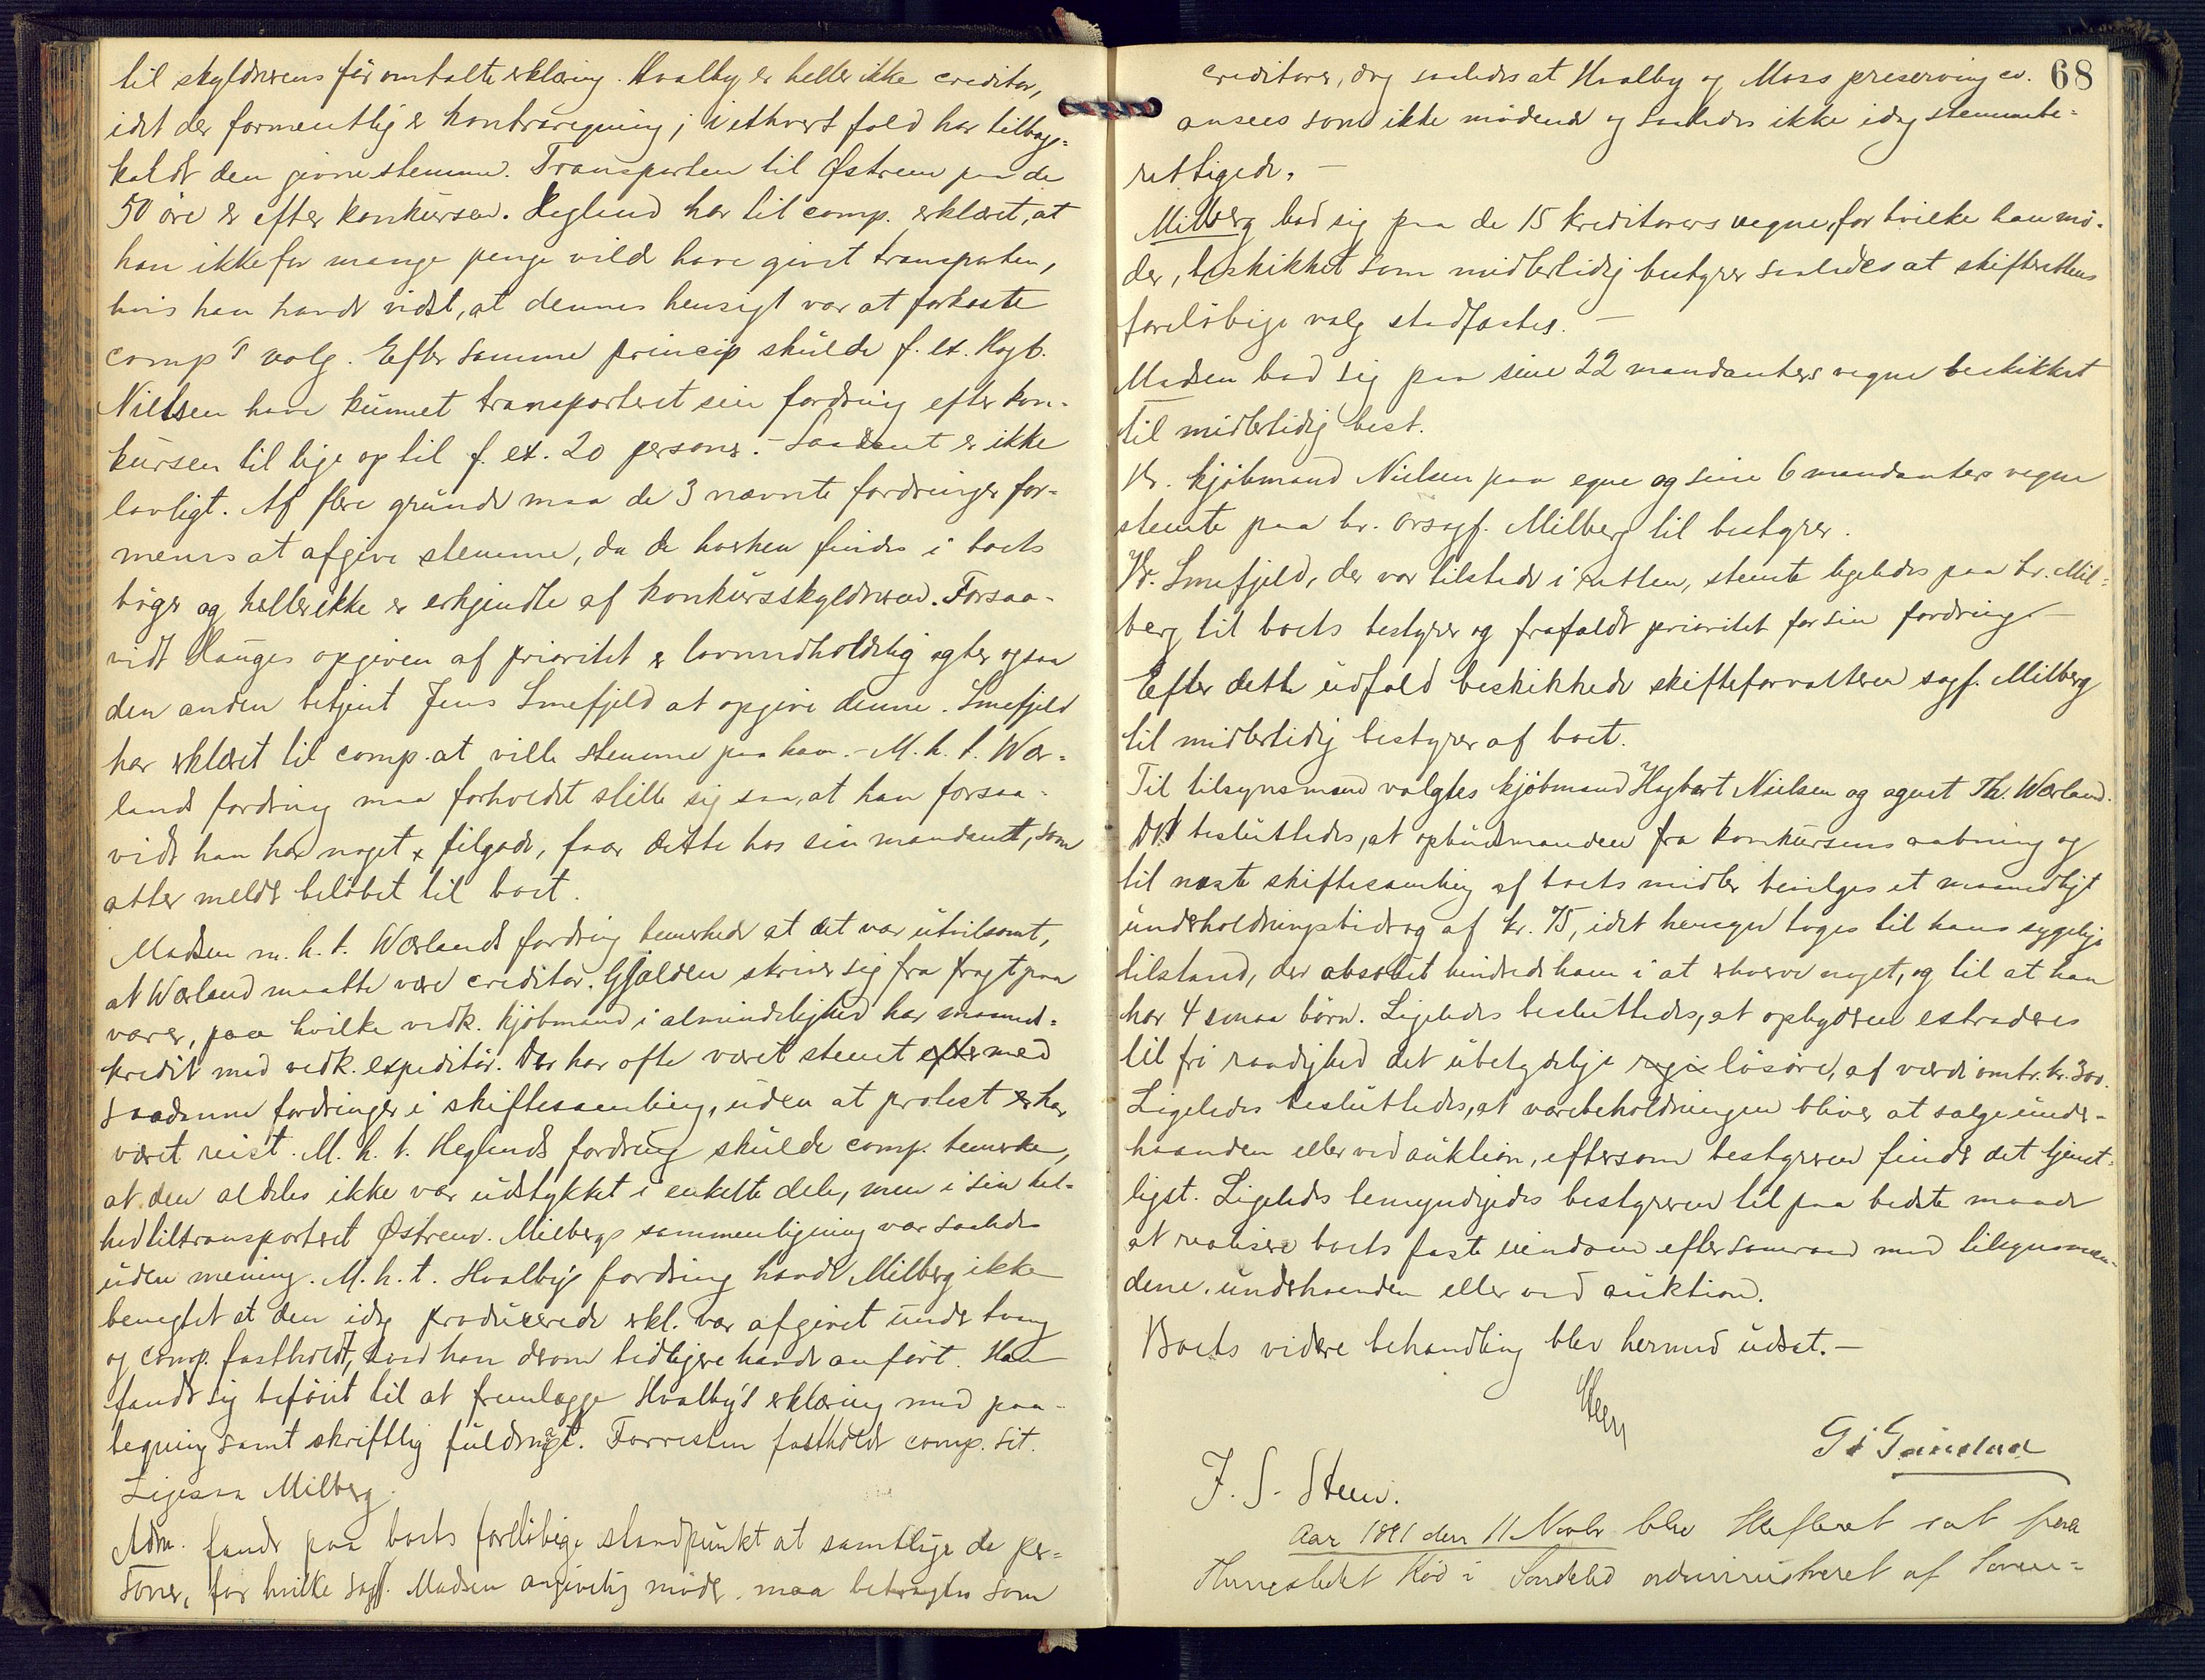 til skyldnerens før omtalte erklæring. Hvalby er heller ikke creditor,
idet der formentlig er kontraregning; i ethvert fald har tilbage-
kaldt den givne stemme. Transporten til Østrem paa de
50 øre er efter konkursen. Heglund har til comp. erklæret, at
han ikke for mange penge vilde have givet transporten,
hvis han havde vidst, at dennes hensigt var at forkaste
comp's valg. Efter samme princip skulde f. ex. Hagb.
Nielsen have kunnet transporteret sin fordring efter kon-
kursen til lige op til f. ex. 20 persone. – Saadant er ikke
lovligt. Af flere grunde maa de 3 nævnte fordringer for-
menes at afgive stemme, da de hverken findes i boets
bøger og heller ikke er erkjendte af konkursskyldneren. Forsaa-
vidt Hauges opgiven af prioritet er lovmedholdelig agter ogsaa
den anden betjent Jens Smefjeld at opgive denne. Smefjeld
har erklæret til comp. at ville stemme paa ham. – M. h. t. Wær-
lands fordring maa forholdet stille sig saa, at han forsaa-
vidt han har noget tilgode, faar dette hos sin mandant, som
atter melder beløbet til boet.
Madsen m. h. t. Wærlands fordring bemerkede at det var utvilsomt,
at Wærland maatte være creditor. Gjælden skriver sig fra fragt paa
varer, paa hvilke vedk. kjøbmand i almindelighed har maaneds-
kredit med vedk. expeditør. Der har ofte været stemt efter med
saadanne fordringer i skiftesamling, uden at protest er har
været reist. M. h. t. Heglunds fordring skulde comp. bemerke,
at den aldeles ikke var udstykket i enkelte dele, men i sin hel-
hed tiltransporteret Østrem. Milbergs sammenligning var saaledes
uden mening. M. h. t. Hvalby's fordring havde Milberg ikke
benegtet at den idag producerede erkl. var afgivet under tvang
og comp. fastholdt, hvad han derom tidligere havde anført. Han
fandt sig beføiet til at fremlægge Hvalby's erklæring med paa-
tegning samt skriftlig fuldmagt. Forresten fastholdt comp. sit.
Ligesaa Milberg.
Adm. fandt paa boets foreløbige standpunkt at samtlige de per-
soner, for hvilke sagf. Madsen angivelig møder, maa betragtes som
68
creditorer, dog saaledes at Hvalby og Moss preserving co.
ansees som ikke mødende og saaledes ikke idag stemmebe-
rettigede. –
Milberg bad sig paa de 15 kreditorers vegne, for hvilke han mø-
der, beskikket som midlertidig bestyrer saaledes at skifterettens
foreløbige valg stadfæstes. –
Madsen bad sig paa sine 22 mandanters vegne beskikket
til midlertidig best.
Hr. kjøbmand Nielsen paa egne og sine 6 mandanters vegne
stemte paa hr. orsagf. Milberg til bestyrer.
Hr. Smefjeld, der var tilstede i retten, stemte ligeledes paa hr. Mil-
berg til boets bestyrer og frafaldt prioritet for sin fordring –
Efter dette udfald beskikkede skifteforvalteren sagf. Milberg
til midlertidig bestyrer af boet.
Til tilsynsmænd valgtes kjøbmand Hagbart Nielsen og agent Th. Wærland.
Det besluttedes, at opbudsmanden fra konkursens aabning og
til næste skiftesamling af boets midler bevilges et maanedligt
underholdningsbidrag af kr. 75, idet hensyn toges til hans sygelige
tilstand, der absolut hindrede ham i at erhverve noget, og til at han
har 4 smaa børn. Ligeledes besluttedes, at opbyderen extraderes
til fri raadighed det ubetydelige løsøre, af værdi omtr. kr. 300.
Ligeledes besluttedes, at varebeholdningen bliver at sælge under-
haanden eller ved auktion, eftersom bestyreren finder det tjenst-
ligst. Ligeledes bemyndigedes bestyreren til paa bedste maade
at realisere boets faste eiendom efter samraad med tilsynsmæn-
dene, underhaanden eller ved auktion.
Boets videre behandling blev hermed udsat. –
J. S. Steen.
Aar 1891 den 11 Novbr blev Skifteret sat paa
Thingstedet Rød i Søndeled administreret af Soren-